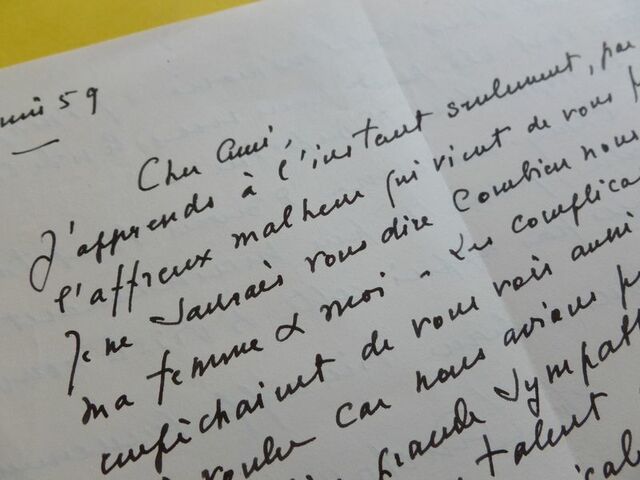 59
Cher Ami,
J'apprends à l'instant seulement, par
l'affreux malheur qui vient de vous
Je ne saurais vous dire combien nous
ma femme & moi - Les complica
empêchaient de vous voir aussi
car nous avions
grande sympath
talent